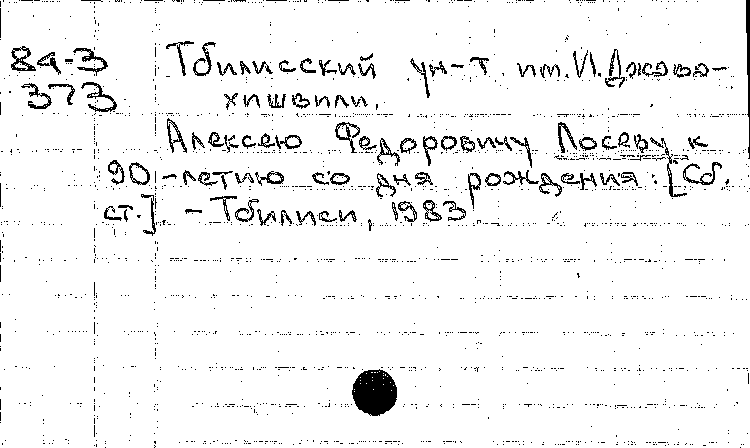 84-3 Тбилисский ун-т им. И. Джава-
373 хишвили.
Алексею Федоровичу Лосеву к
90-летию со дня рождения: [Сб.
ст.]. - Тбилиси, 1983.